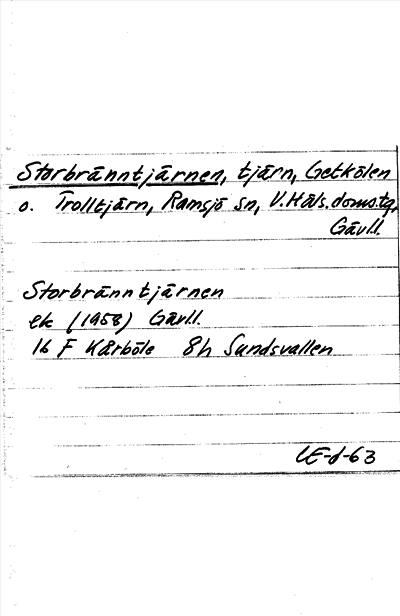 Storbränntjärnen, tjärn, Getkölen
o. Trolltjärn, Ramsjö sn, V.Häls.doms.tg,
Gävl.l.
Storbränntjärnen
ek (1958) Gävl.l.
16 F Kårböle 8h Sundsvallen